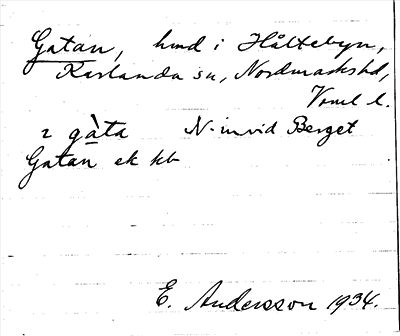 Gatan, hmd i Håltebyn,
Karlanda sn, Nordmarks hd,
Vrml l.
2 gàta N. invid Berget
Gatan ek kb
E. Andersson 1934.